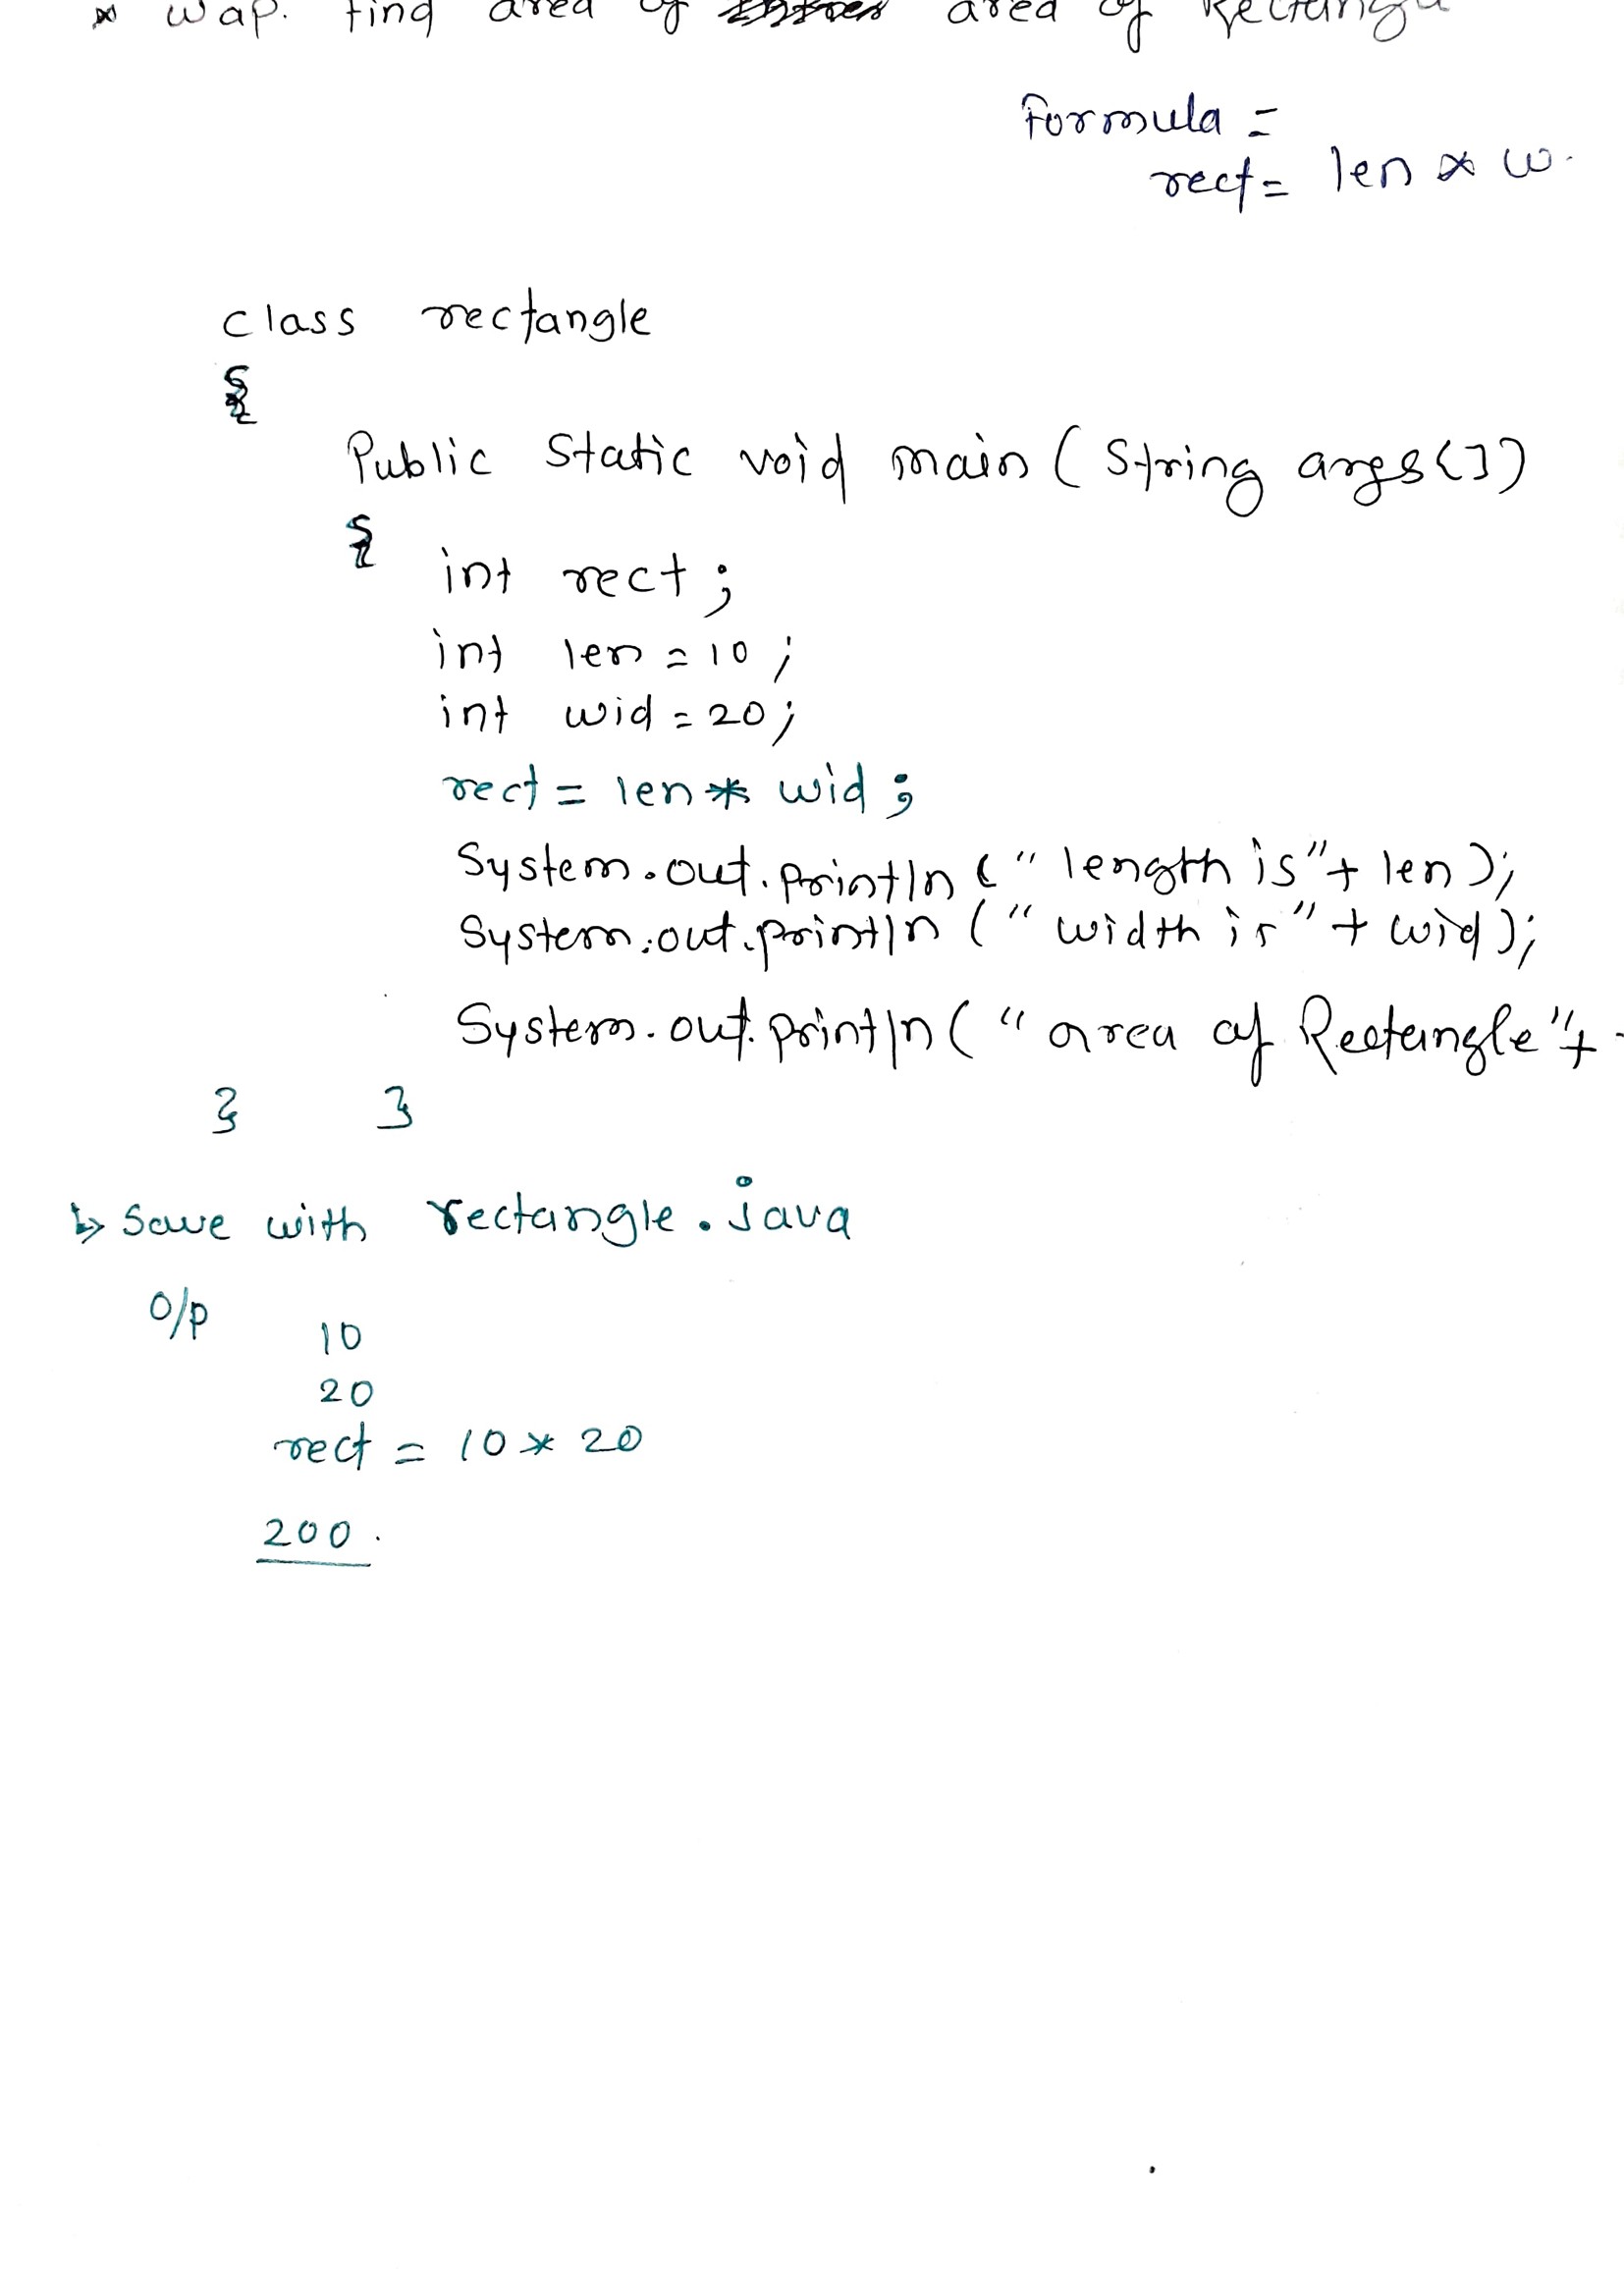 * wap. find area of area of Rectangle
Formula =
rect = len * w.
class rectangle
{
Public Static void main ( String args[])
{
int rect ;
int len = 10 ;
int wid = 20 ;
rect = len * wid ;
System.out.println (" length is"+ len );
System.out.println (" width is" + wid );
System.out.println (" area of Rectangle"+
} }
↳ Save with rectangle.java
O/p
10
20
rect = 10 * 20
200.